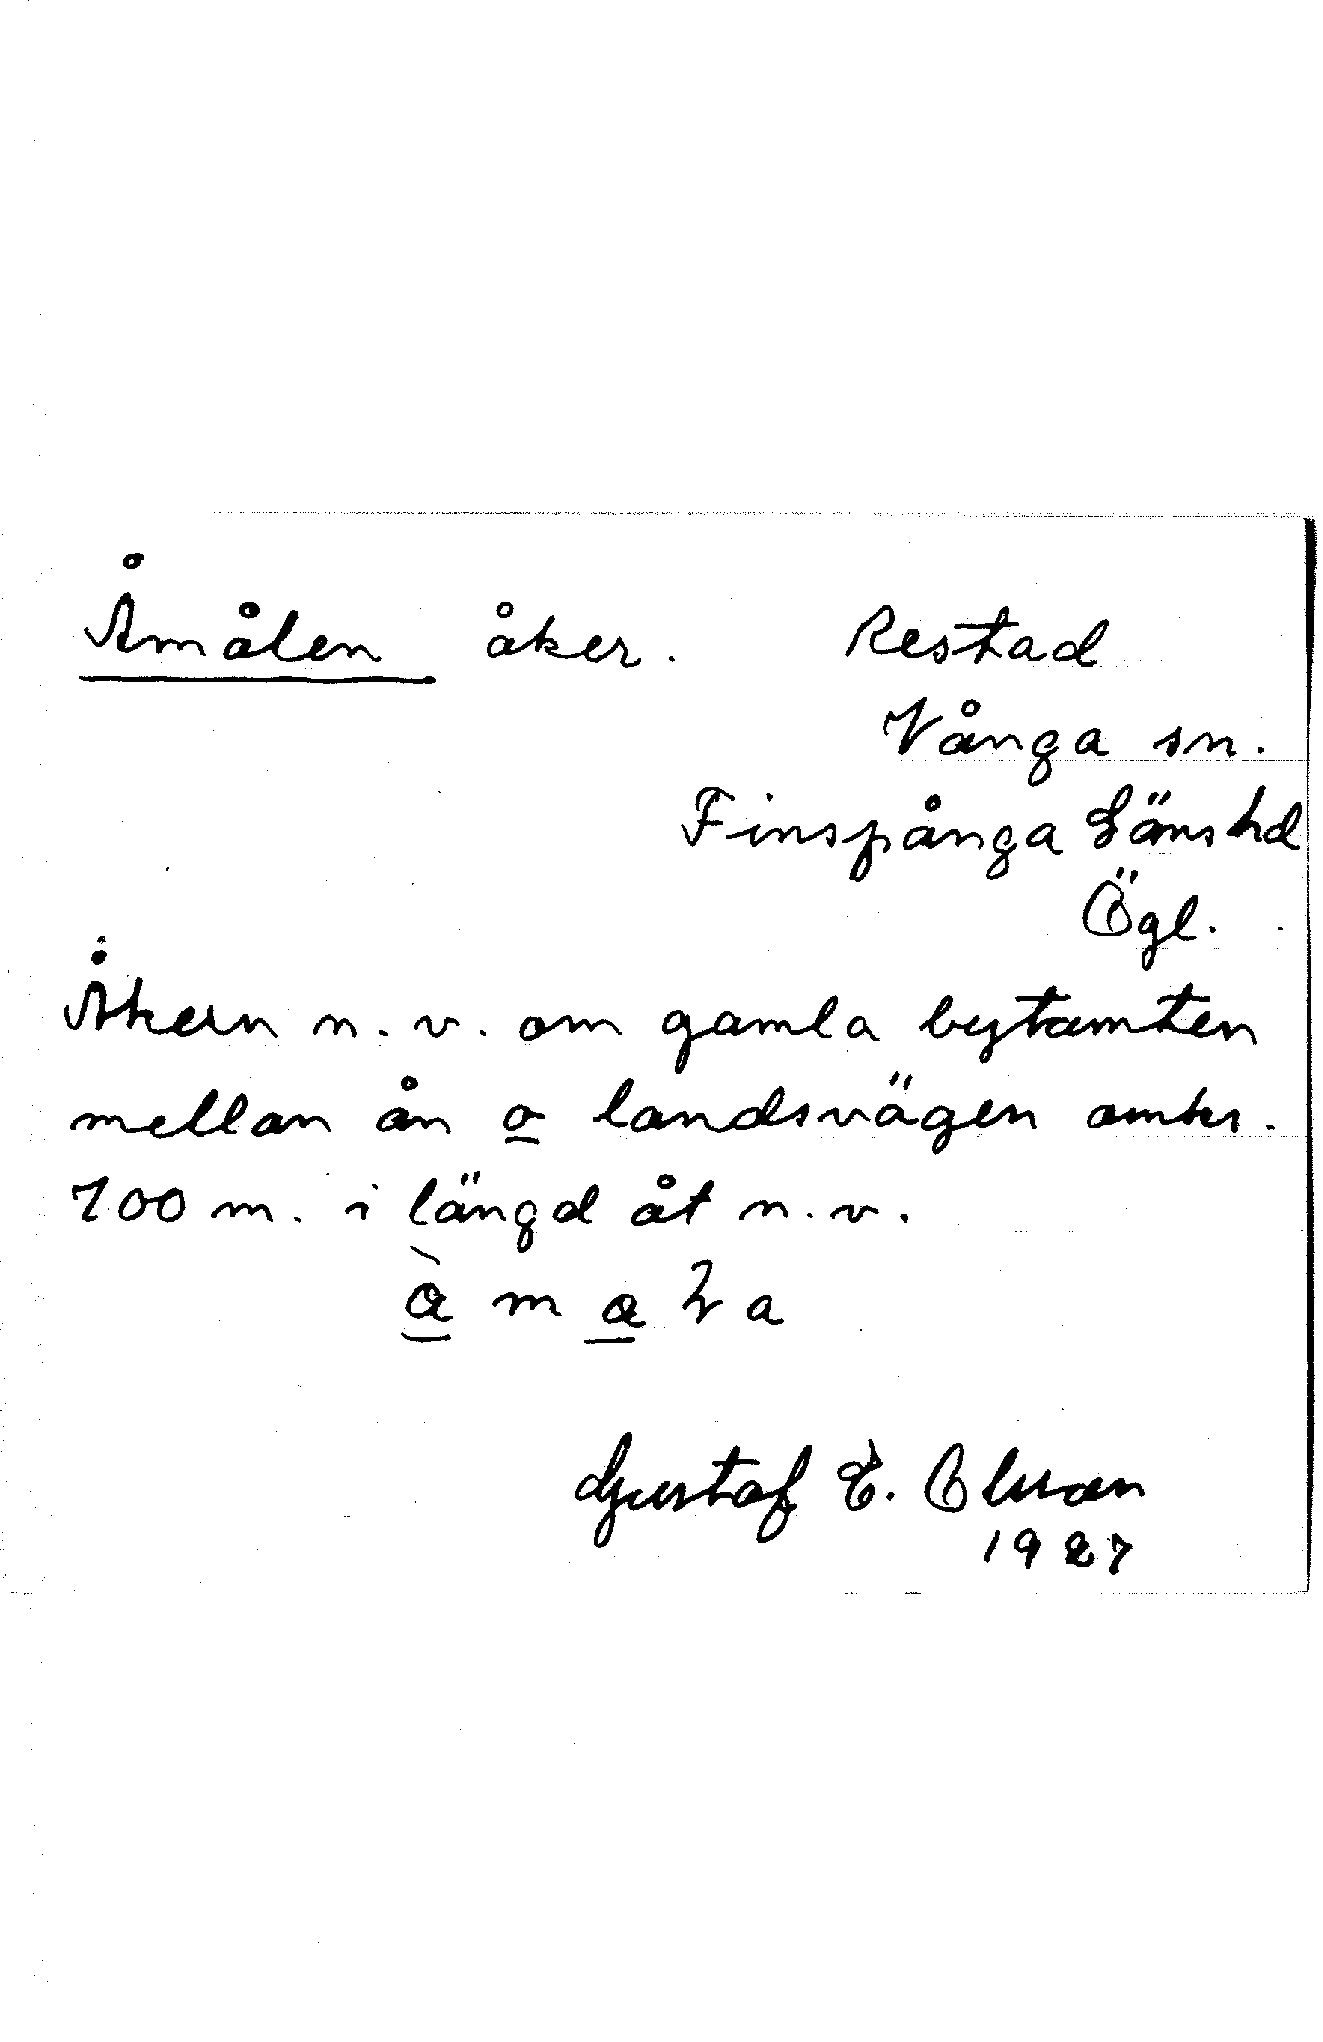 Åmålen åker. Restad
Vånga sn.
Finspånga Läns hd
Ögl.
Åkern n.v. om gamla bytomten
mellan ån o landsvägen omkr.
700 m. i längd åt n.v.
Gustaf E. Olsson
1927